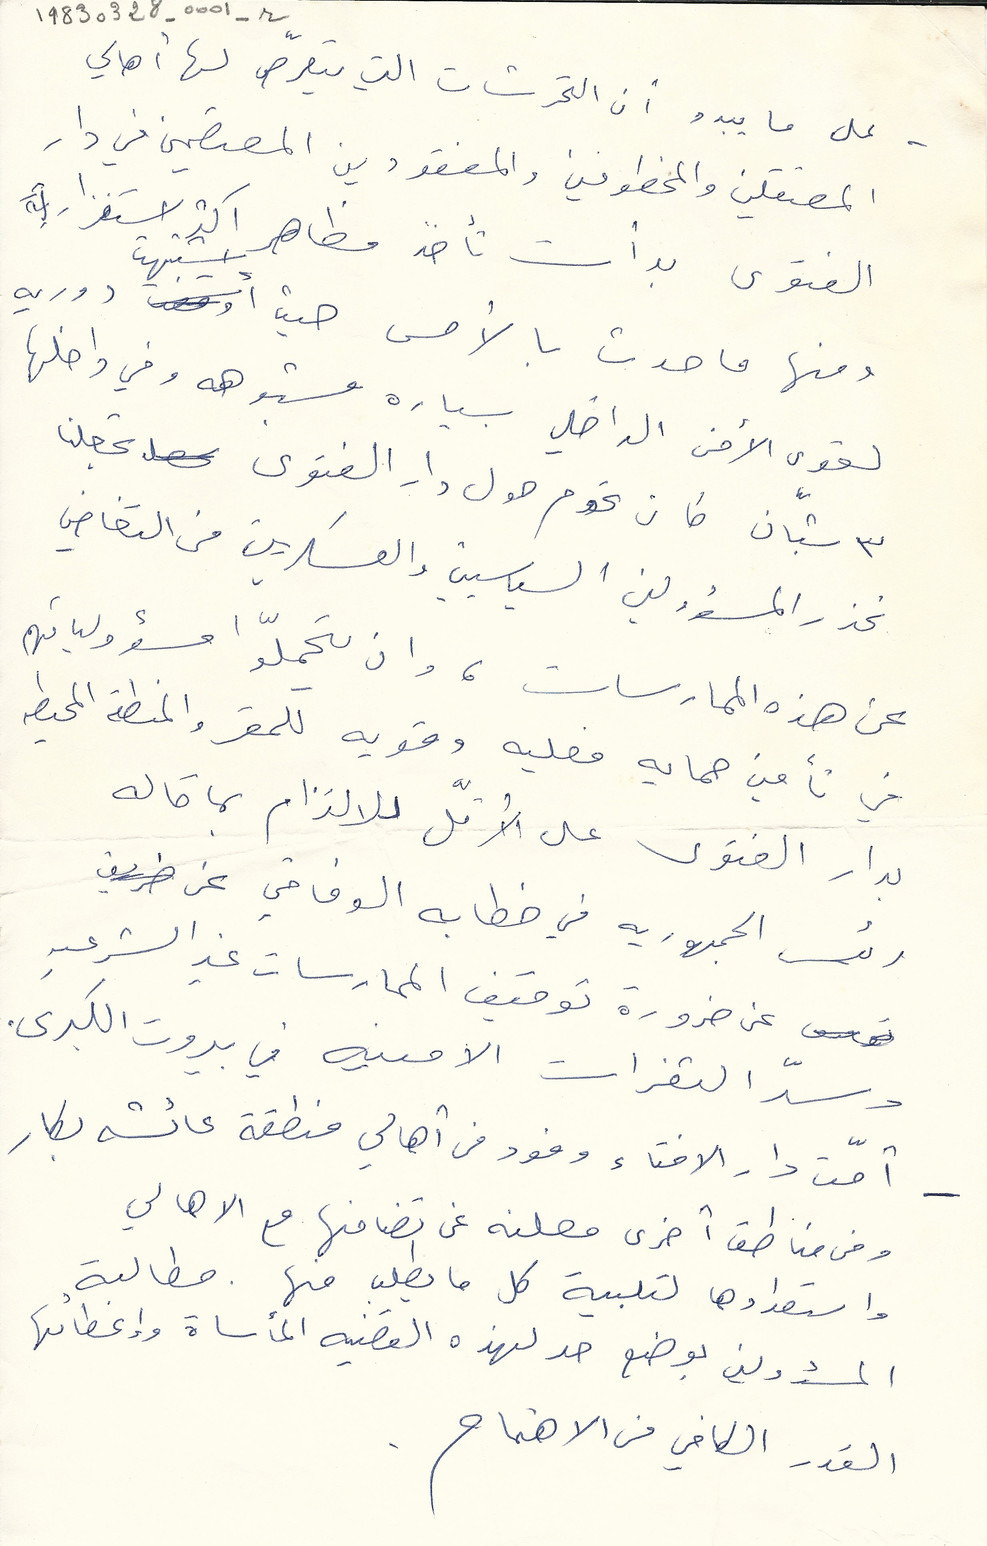 19830328_0001_r
- على ما يبدو أن التحرشات التي يتعرّض لها أهالي
المعتقلين والمخطوفين والمفقودين المعتصمين في دار
الفتوى بدأت تأخذ مظاهر اكثر استفزازية
ومنها ما حدث بالأمس حيث اشتبهت دوريه
لقوى الأمن الداخلي بسياره مشبوهه وفي داخلها
٣ شبّان كان تحوم حول دار الفتوى تجعلنا
نحذر المسؤولين السياسيين والعسكريين من التغاضي
عن هذه الممارسات ، وان يتحملّوا مسؤولياتهم
في تأمين حمايه فعليه وقويه للمقر والمنطقة المحيطه
بدار الفتوى على الأقلّ للالتزام بما قاله
رئيس الجمهوريه في خطابه الوفاقي عن طريق
عن ضرورة توقيف الممارسات غير الشرعيه
وسدّ الثغرات الامنيه في بيروت الكبرى.
- أمّت دار الافتاء وفود من أهالي منطقة عائشه بكار
ومن مناطق أخرى معلنه عن تضامنها مع الاهالي
واستعدادها لتلبية كل ما يطلب منها . مطالبة
المسؤولين بوضع حد لهذه القضيه المأساة وإعطائها
القدر الكافي من الاهتمام .